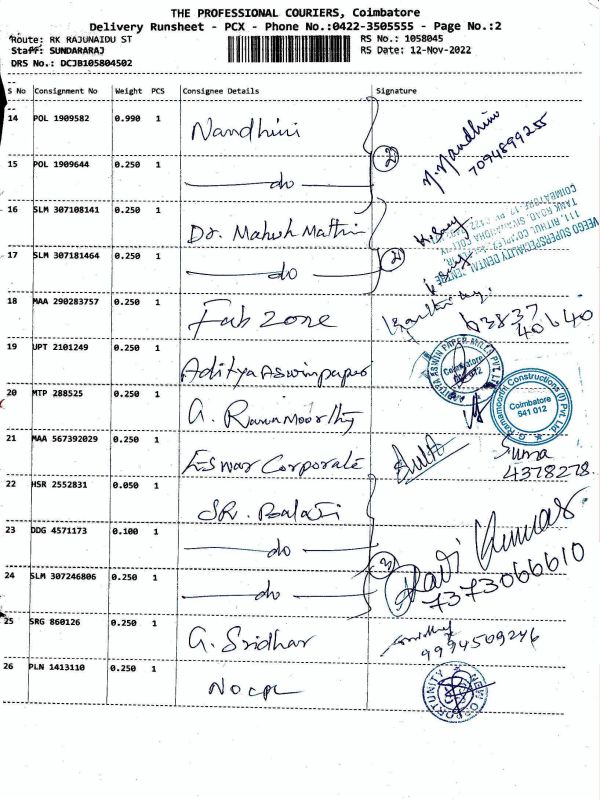 THE PROFESSIONAL COURIERS, Coimbatore
Delivery Runsheet - PCX - Phone No.:0422-3505555 - Page No.:2
Route: RK RAJUNAIDU ST RS No.: 1058045
Staff: SUNDARARAJ RS Date: 12-Nov-2022
DRS No.: DCJB105804502
S No Consignment No Weight PCS Consignee Details Signature
14 POL 1909582 0.990 1 Nandhini N. Nandhini
7094899255
15 POL 1909644 0.250 1 do 2
16 SLM 307108141 0.250 1 Dr. Mahesh Mathin
VEEGO SUPERSPECIALITY DENTAL CENTRE
17 SLM 307181464 0.250 1 do 2
18 MAA 290283757 0.250 1 Fab Zone
63837
40640
19 UPT 2101249 0.250 1 Aditya Aswin paper
ADITYA ASWIN PAPER MILLS PVT. LTD Coimbatore
20 MTP 288525 0.250 1 G. Ramamoorthy
G.Ramamoorthi Constructions (I) Pvt. Ltd. Coimbatore 641 012
21 MAA 567392029 0.250 1 Eswar Corporate Suma
4378278
22 HSR 2552831 0.050 1 SR. Balaji
23 DDG 4571173 0.100 1 do 3 Ravi Kumar
7373066610
24 SLM 307246806 0.250 1 do
25 SRG 860126 0.250 1 G. Sridhar
9994509246
26 PLN 1413110 0.250 1 NO CPL
NEW OPPORTUNITY